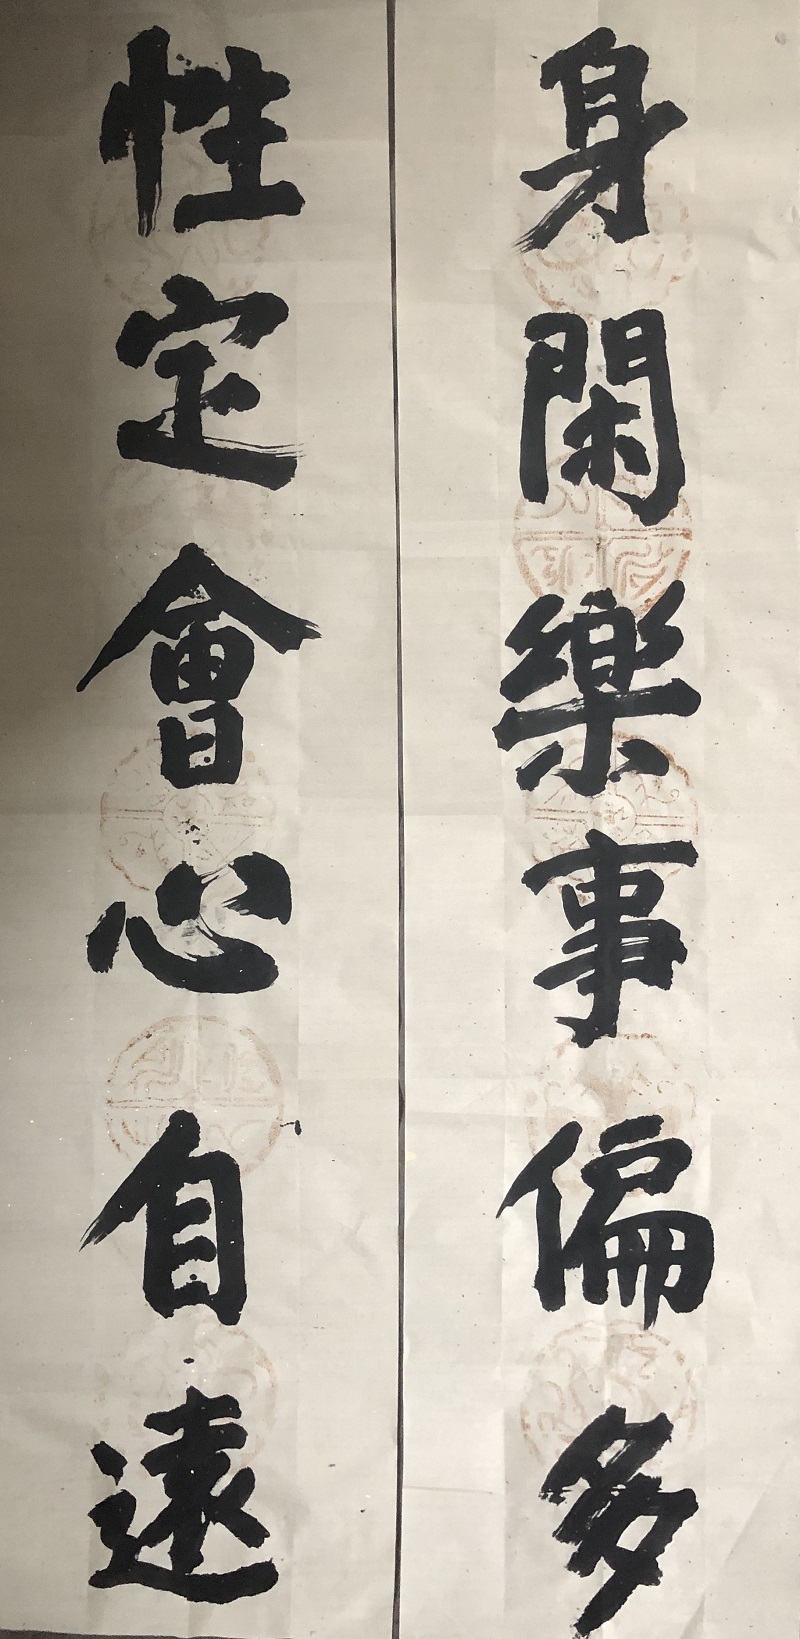 身閑樂事偏多
性定會心自遠